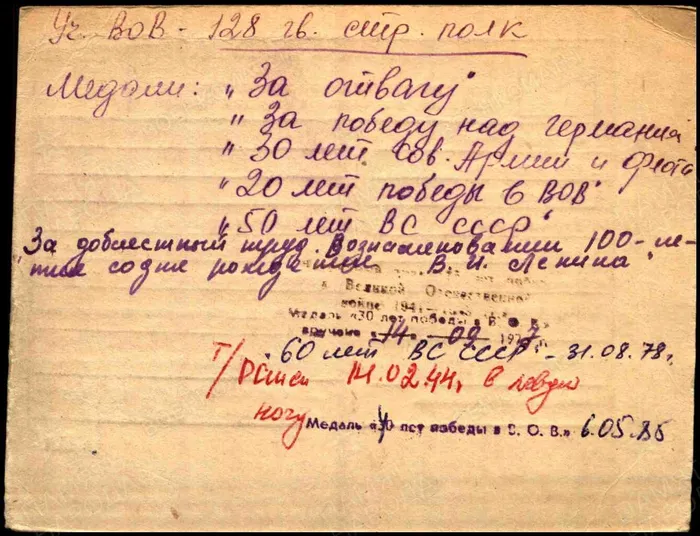 Уч. ВОВ - 128 гв. стр. полк
Медали: „За отвагу"
„За победу над Германией
„30 лет Сов. Армии и флота
„20 лет победы в ВОВ"
„50 лет ВС СССР"
„За доблестный труд. Вознаменовании 100-ле-
тие содня рождения В. И. Ленина"
в Великой Отечественной
войне 1941-
Медаль «30 лет победы в В. О. В.»
вручена «14» 02 197 г.
60 лет ВС СССР - 31.08.78г.
т/ранен 14.02.44г. в левую
ногу
Медаль «40 лет победы в В. О. В.» 6.05.85